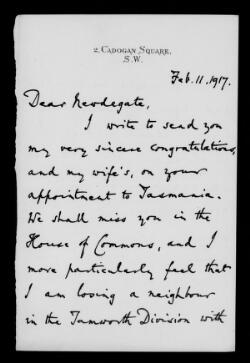 2, CADOGAN SQUARE,
S.W.
Feb. 11. 1917.
Dear Newdegate,
I write to send you
my very sincere congratulations,
and my wife's, on your
appointment to Tasmania.
We shall miss you in the
House of Commons, and I
more particularly feel that
I am losing a neighbour
in the Tamworth Division with